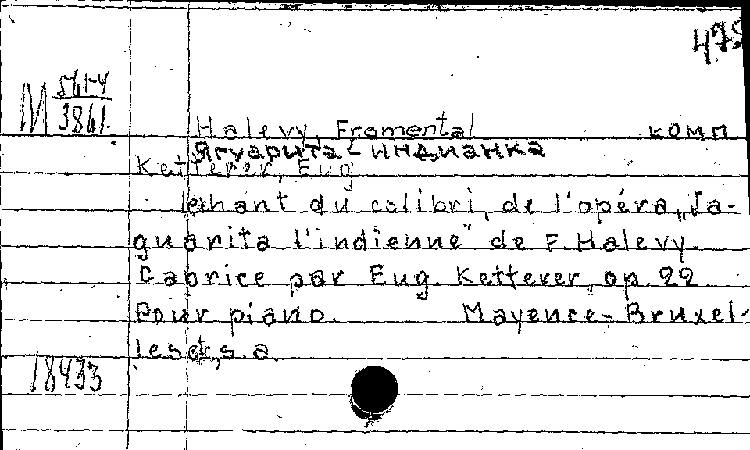 475
M 561-4
3861
Halevy, Fromental комп
Ягуарита-индианка
Ketterer, Eug
Lehant du colibri, de l'opéra „Ja-
guarita l'indienne" de F. Halevy.
Caprice par Eug. Ketterer, op. 22
Pour piano. Mayence-Bruxel-
les et, s.a.
18433